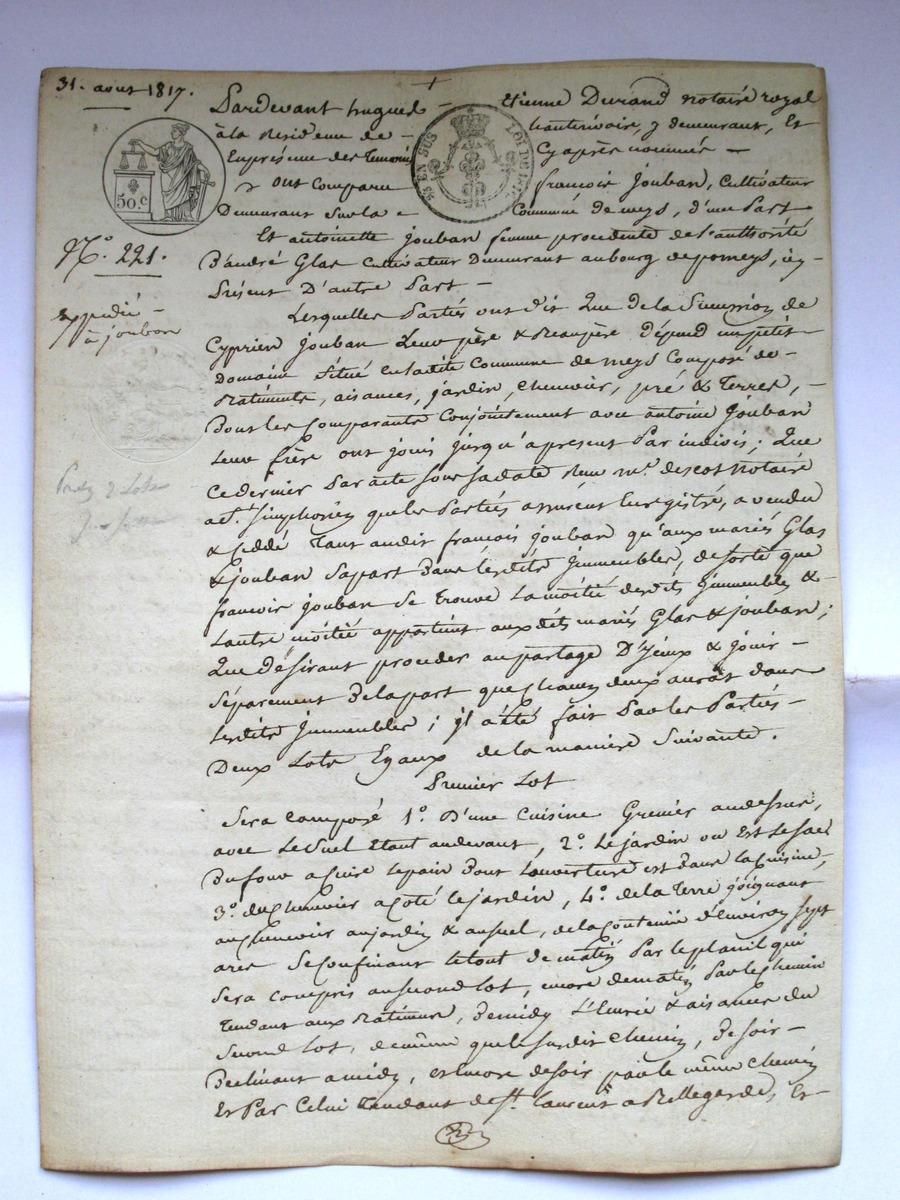 31. aout 1817.
Pardevant hugues - Etienne Durand notaire royal
à la Residence de - hauterivoire, y demeurant, Et
En présence des Temoins Cy après nommés —
50.c
EN SUS
LOI DE 1816
ont comparu françois Jouban, Cultivateur
Demeurant Sur la Commune de meys, d'une Part
N.o 221.
Et antoinette Jouban femme procedente de l'authorité
D'andré Glas Cultivateur Demeurant au bourg de pomeys, icy
Présent D'autre Part —
expedié -
à jouban
Lesquelles Parties ont dit Que de la Succession de
Cyprien Jouban Leur père & Beaupère Dépend un petit
Domaine Situé en ladite Commune de meys Composé de -
Batiments, aisances, jardin, chenevier, pré & Terres, -
Dont les Comparants Conjointement avec antoine Jouban
Leur frère ont jouis jusqu'apresent Par indivis ; Que
Ce dernier Par acte Sous Sa date Reçu m.e descot Notaire
a St. Simphorien que les Parties assurent Enregistré, a vendu
& Ceddé Tant audit françois Jouban qu'aux mariés Glas
& Jouban Sa part Dans lesdits Jmmeubles, de Sorte que
françois Jouban Se Trouve La moitié desdits Jmmeubles & -
L'autre moitié appartient auxdits mariés Glas & Jouban ;
Que Désirant proceder au partage D'Jceux & jouir -
Séparement De la part que Chacun d'eux auroit dans
Lesdits Jmmeubles ; jl a été fait Par les Parties -
Deux Lots Egaux de la maniere Suivante.
Premier Lot
Sera composé 1.o D'une Cuisine Grenier au dessus,
avec Le Suel Etant au devant, 2.o Le jardin ou Est Le Sac
Du four a Cuire le pain Dont L'ouverture est Dans la Cuisine,
3.o du Chenevier a Coté le jardin, 4.o de la Terre joignant
au Chenevier au jardin & au Suel, de la Contenue d'Environ Sept
ares Se Confinant Le tout de matin Par le planil qui
Sera compris au Second lot, encore de matin Par le Chemin
Tendant aux Batiments, De midy L'Ecurie & aisances du
Second Lot, de même que le Susdit Chemin, De Soir -
Declinant a midy, Encore de Soir par le même Chemin
Et Par Celui Tendant de St. Laurent a Bellegarde, Et -